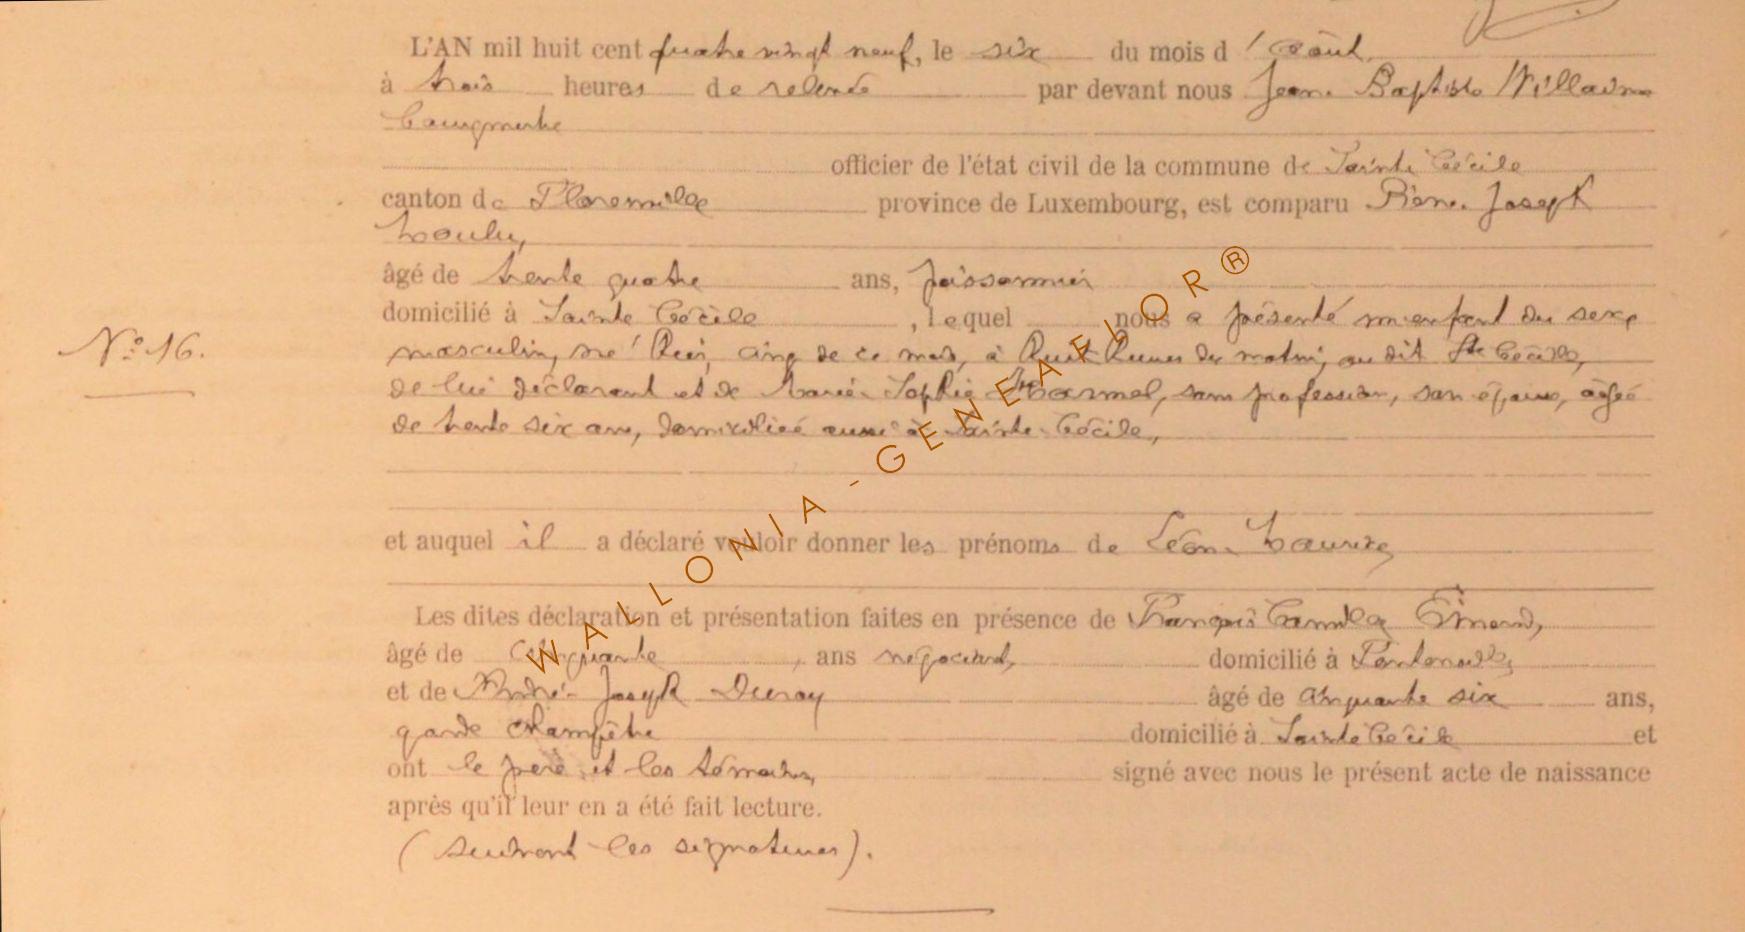 L'AN mil huit cent quatre vingt neuf, le six du mois d'Août
à trois heures de relevée par devant nous Jean Baptiste Willaime
Bourgmestre
officier de l'état civil de la commune de Sainte Cécile
canton de Florenville province de Luxembourg, est comparu Pierre Joseph
âgé de trente quatre ans, poissonnier
domicilié à Sainte Cécile, lequel nous a présenté un enfant du sexe
N° 16.
masculin, né hier, cinq de ce mois, à huit heures du matin, au dit Ste Cécile,
de lui déclarant et de Marie Sophie sans profession, son épouse, âgée
de trente six ans, domiciliée aussi à Sainte Cécile,
et auquel il a déclaré vouloir donner les prénoms de Léon Maurice,
Les dites déclaration et présentation faites en présence de François Camille
âgé de Cinquante, ans négociant, domicilié à Fontenoille,
et de André Joseph Duroy âgé de cinquante six ans,
garde champêtre domicilié à Sainte Cécile et
ont le père et les témoins, signé avec nous le présent acte de naissance
après qu'il leur en a été fait lecture.
(suivent les signatures).
WALLONIA-GENEAFLOR®